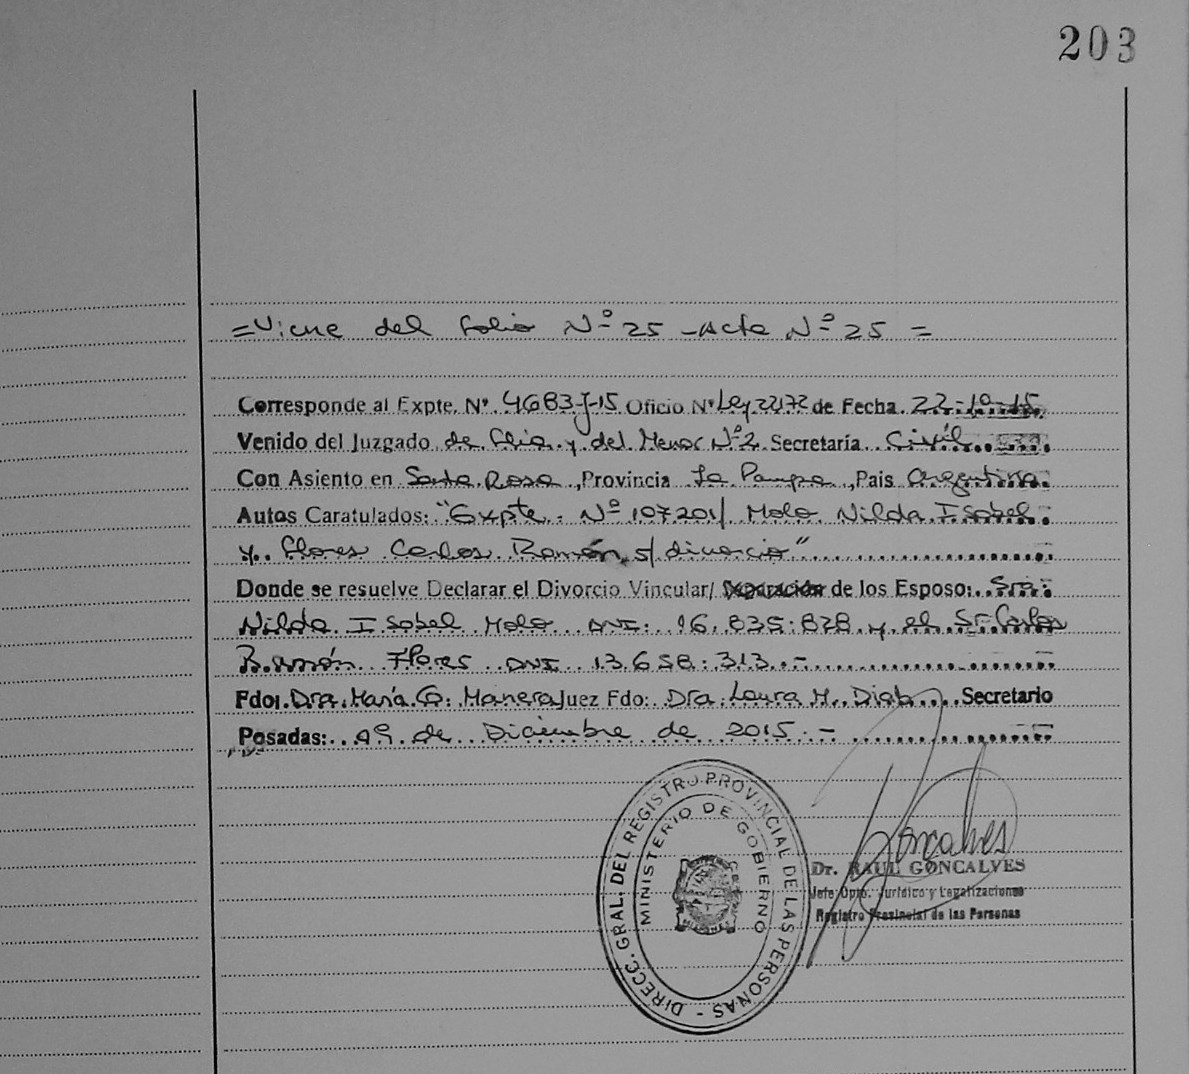 203
=Viene del folio Nº 25 - Acta Nº 25 =
Corresponde al Expte. Nº 4683-J-15 Oficio Nº Ley 22172 de Fecha 22-10-15
Venido del Juzgado de Flia. y del Menor Nº 2 Secretaría Civil
Con Asiento en Santa Rosa, Provincia La Pampa, Pais Argentina
Autos Caratulados: "Expte. Nº 107201/ Molo Nilda Isabel
y Flores Carlos Ramón s/ divorcio"
Donde se resuelve Declarar el Divorcio Vincular/ Separación de los Esposo: Sra.
Nilda Isabel Molo DNI: 16.835.828 y el Sr Carlos
Ramón Flores DNI 13.658.313.-
Fdo: Dra. María G. Manera Juez Fdo: Dra. Laura M. Diab Secretario
Posadas: 09 de Diciembre de 2015.-
DIRECC. GRAL. DEL REGISTRO PROVINCIAL DE LAS PERSONAS -
MINISTERIO DE GOBIERNO
Goncalves
Dr. RAUL GONCALVES
Jefe Dpto. Jurídico y Legalizaciones
Registro Provincial de las Personas